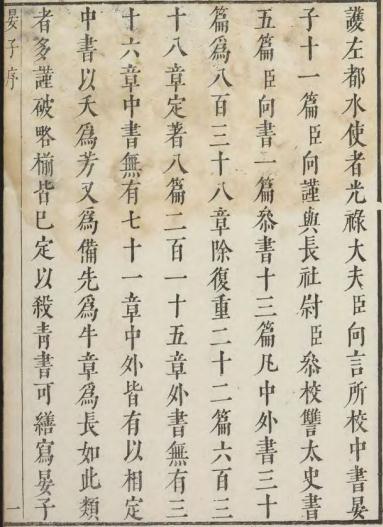 護左都水使者光祿大夫臣向言所校中書晏
子十一篇臣向謹與長社尉臣叅校讐太史書
五篇臣向書一篇叅書十三篇凡中外書三十
篇爲八百三十八章除復重二十二篇六百三
十八章定著八篇二百一十五章外書無有三
十六章中書無有七十一章中外皆有以相定
中書以夭爲芳又爲備先爲牛章爲長如此類
者多謹破略椾皆已定以殺青書可繕寫晏子
晏子序 一